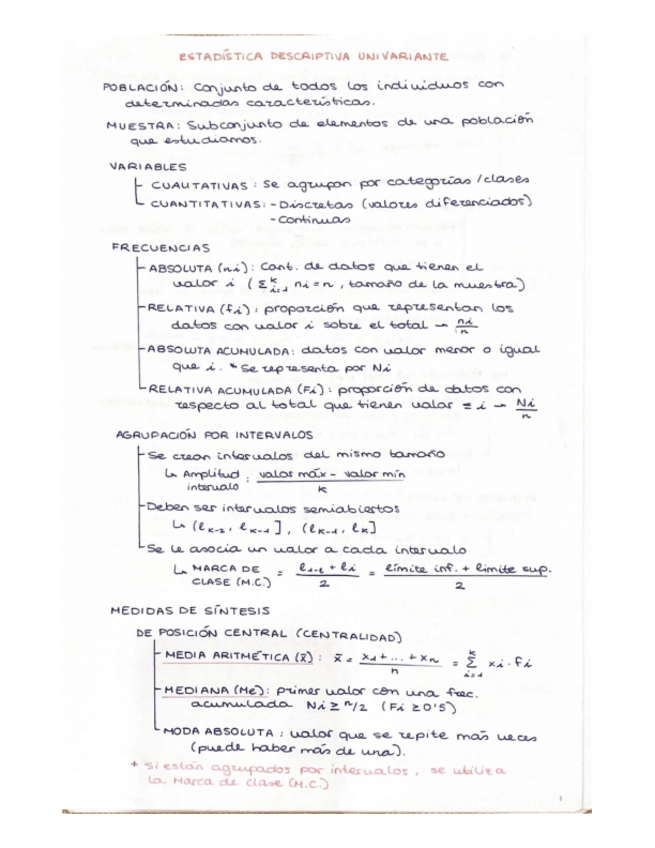 ESTADÍSTICA DESCRIPTIVA UNIVARIANTE
POBLACIÓN: Conjunto de todos los individuos con
determinadas características.
MUESTRA: Subconjunto de elementos de una población
que estudiamos.
VARIABLES
CUALITATIVAS: Se agrupan por categorías / clases
CUANTITATIVAS: - Discretas (valores diferenciados)
- Continuas
FRECUENCIAS
ABSOLUTA (ni): Cant. de datos que tienen el
valor i (Σ^k_{i=1} ni = n, tamaño de la muestra)
RELATIVA (fi): proporción que representan los
datos con valor i sobre el total → ni/n
ABSOLUTA ACUMULADA: datos con valor menor o igual
que i. * Se representa por Ni
RELATIVA ACUMULADA (Fi): proporción de datos con
respecto al total que tienen valor ≤ i → Ni/n
AGRUPACIÓN POR INTERVALOS
Se crean intervalos del mismo tamaño
↳ Amplitud intervalo : (valor máx - valor mín)/k
Deben ser intervalos semiabiertos
↳ (l_{k-2}, l_{k-1}], (l_{k-1}, l_k]
Se le asocia un valor a cada intervalo
↳ MARCA DE CLASE (M.C.) = (l_{i-1} + l_i)/2 = (límite inf. + límite sup.)/2
MEDIDAS DE SÍNTESIS
DE POSICIÓN CENTRAL (CENTRALIDAD)
MEDIA ARITMÉTICA (x̄): x̄ = (x1 + ... + xn)/n = Σ^k_{i=1} xi · fi
MEDIANA (Me): primer valor con una frec.
acumulada Ni ≥ n/2 (Fi ≥ 0'5)
MODA ABSOLUTA: valor que se repite más veces
(puede haber más de una).
* Si están agrupados por intervalos, se utiliza
la Marca de clase (M.C.)
1